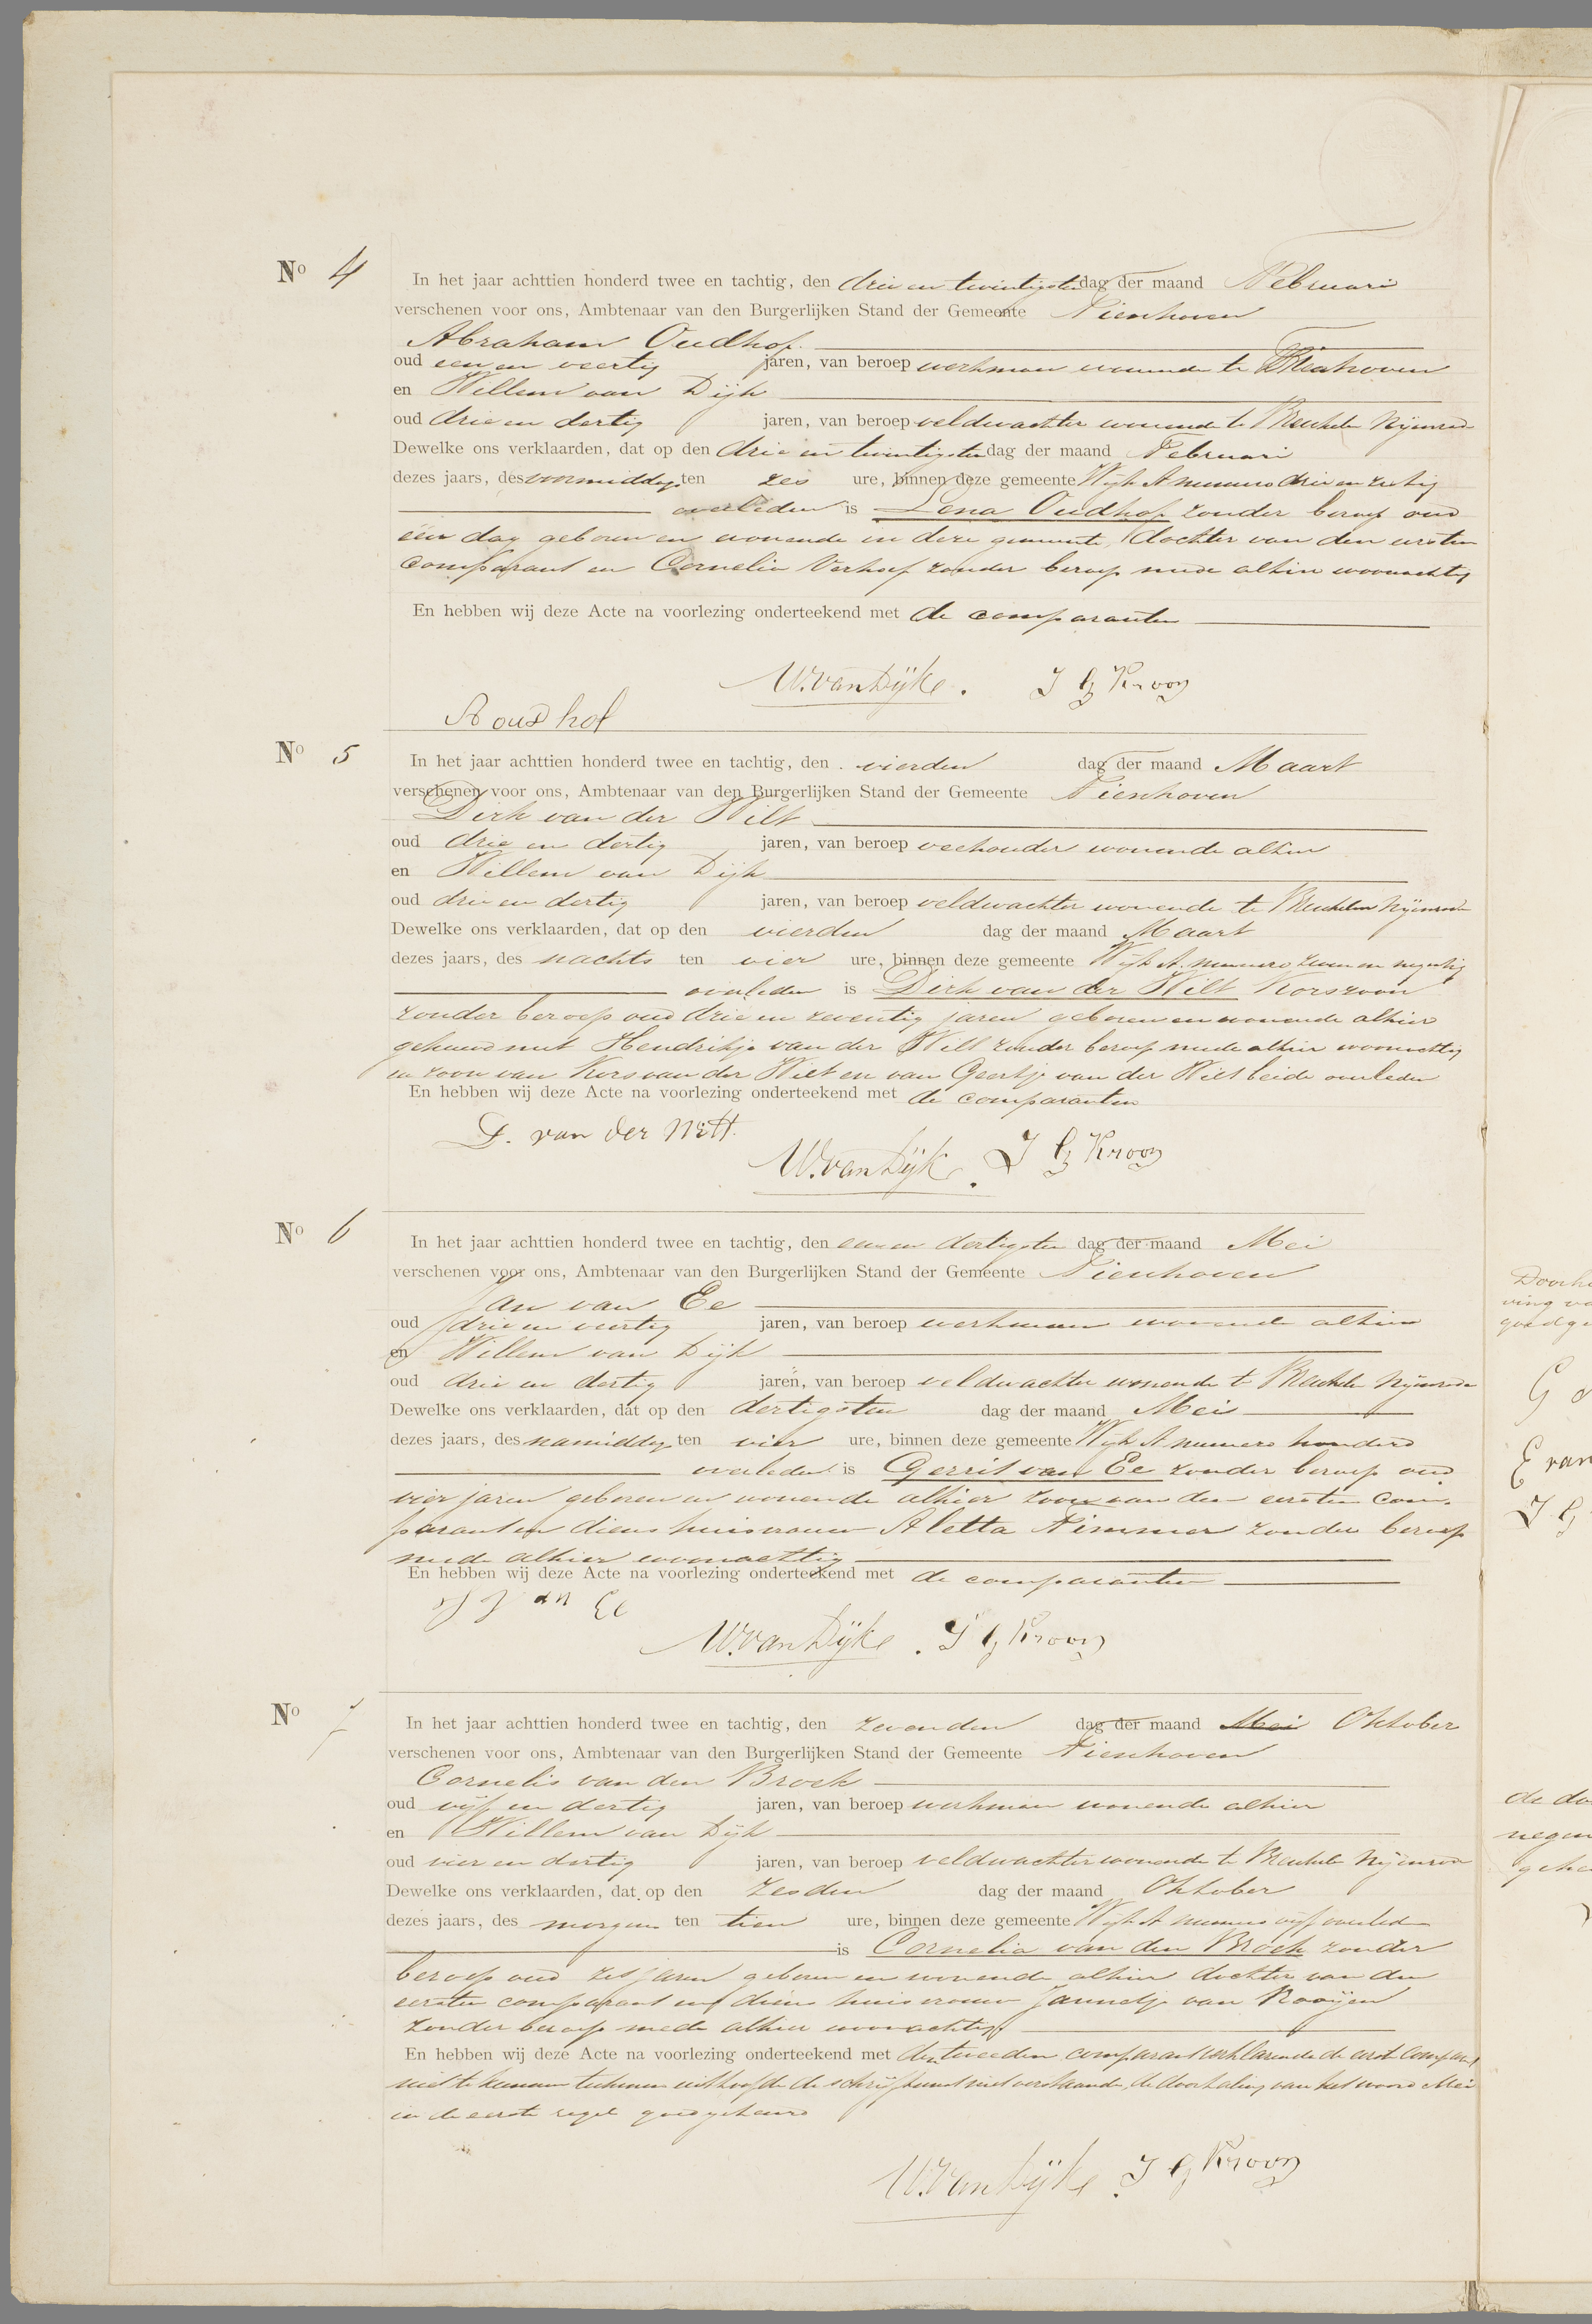 Nº 4
In het jaar achttien honderd twee en tachtig, den drie en twintigsten dag der maand Februari
verschenen voor ons, Ambtenaar van den Burgerlijken Stand der Gemeente Tienhoven
Abraham Oudhof
oud een en veertig jaren, van beroep werkman wonende te Tienhoven
en Willem van Dijk
oud drie en dertig jaren, van beroep veldwachter wonende te Breukelen Nijenrode
Dewelke ons verklaarden, dat op den drie en twintigsten dag der maand Februari
dezes jaars, des voormiddags ten zes ure, binnen deze gemeente Wijk A nummero drie en zestig
overleden is Lena Oudhof zonder beroep oud
één dag geboren en wonende in deze gemeente, dochter van den eersten
comparant en Cornelia Verhoef zonder beroep mede alhier woonachtig
En hebben wij deze Acte na voorlezing onderteekend met de comparanten
W. van Dijk. J G Kroon
A oudhof
Nº 5
In het jaar achttien honderd twee en tachtig, den vierden dag der maand Maart
verschenen voor ons, Ambtenaar van den Burgerlijken Stand der Gemeente Tienhoven
Dirk van der Wilt
oud drie en dertig jaren, van beroep veehouder wonende alhier
en Willem van Dijk
oud drie en dertig jaren, van beroep veldwachter wonende te Breukelen Nijenrode
Dewelke ons verklaarden, dat op den vierden dag der maand Maart
dezes jaars, des nachts ten vier ure, binnen deze gemeente Wijk A. nummero zeven en negentig
overleden is Dirk van der Wilt Korszoon
zonder beroep oud drie en zeventig jaren geboren en wonende alhier
gehuwd met Hendrikje van der Wilt zonder beroep mede alhier woonachtig
en zoon van Kors van der Wilt en van Geertje van der Wilt beide overleden
En hebben wij deze Acte na voorlezing onderteekend met de comparanten
D. van der Wilt.
W. van Dijk. J G Kroon
Nº 6
In het jaar achttien honderd twee en tachtig, den een en dertigsten dag der maand Mei
verschenen voor ons, Ambtenaar van den Burgerlijken Stand der Gemeente Tienhoven
Jan van Ee
oud drie en veertig jaren, van beroep werkman wonende alhier
en Willem van Dijk
oud drie en dertig jaren, van beroep veldwachter wonende te Breukelen Nijenrode
Dewelke ons verklaarden, dat op den dertigsten dag der maand Mei
dezes jaars, des namiddags ten vier ure, binnen deze gemeente Wijk A nummero honderd
overleden is Gerrit van Ee zonder beroep oud
vier jaren geboren en wonende alhier zoon van den eersten com-
parant en diens huisvrouw Aletta Timmer zonder beroep
mede alhier woonachtig
En hebben wij deze Acte na voorlezing onderteekend met de comparanten
van Ee
W. van Dijk. J G Kroon
Nº 7
In het jaar achttien honderd twee en tachtig, den zevenden dag der maand Mei Oktober
verschenen voor ons, Ambtenaar van den Burgerlijken Stand der Gemeente Tienhoven
Cornelis van den Broek
oud vijf en dertig jaren, van beroep werkman wonende alhier
en Willem van Dijk
oud vier en dertig jaren, van beroep veldwachter wonende te Breukelen Nijenrode
Dewelke ons verklaarden, dat op den zesden dag der maand Oktober
dezes jaars, des morgens ten tien ure, binnen deze gemeente Wijk A nummero vijf overleden
is Cornelia van den Broek zonder
beroep oud zes jaren geboren en wonende alhier dochter van den
eersten comparant en diens huisvrouw Jannetje van Rooijen
zonder beroep mede alhier woonachtig
En hebben wij deze Acte na voorlezing onderteekend met den tweeden comparant verklarende de eerste comparant
niet te kunnen teekenen uithoofde de schrijfkunst niet verstaande, de doorhaling van het woord Mei
in de eerste regel goedgekeurd
W. van Dijk. J G Kroon